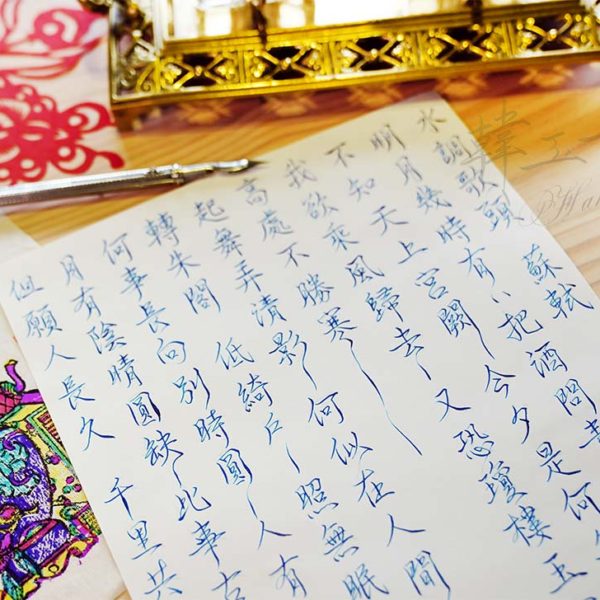 水調歌頭 蘇軾
明月幾時有 把酒問青
不知天上宮闕 今夕是何
我欲乘風歸去 又恐瓊樓玉
高處不勝寒
起舞弄清影 何似在人間
轉朱閣 低綺戶 照無眠
何事長向別時圓 人有
月有陰晴圓缺 此事古
但願人長久 千里共